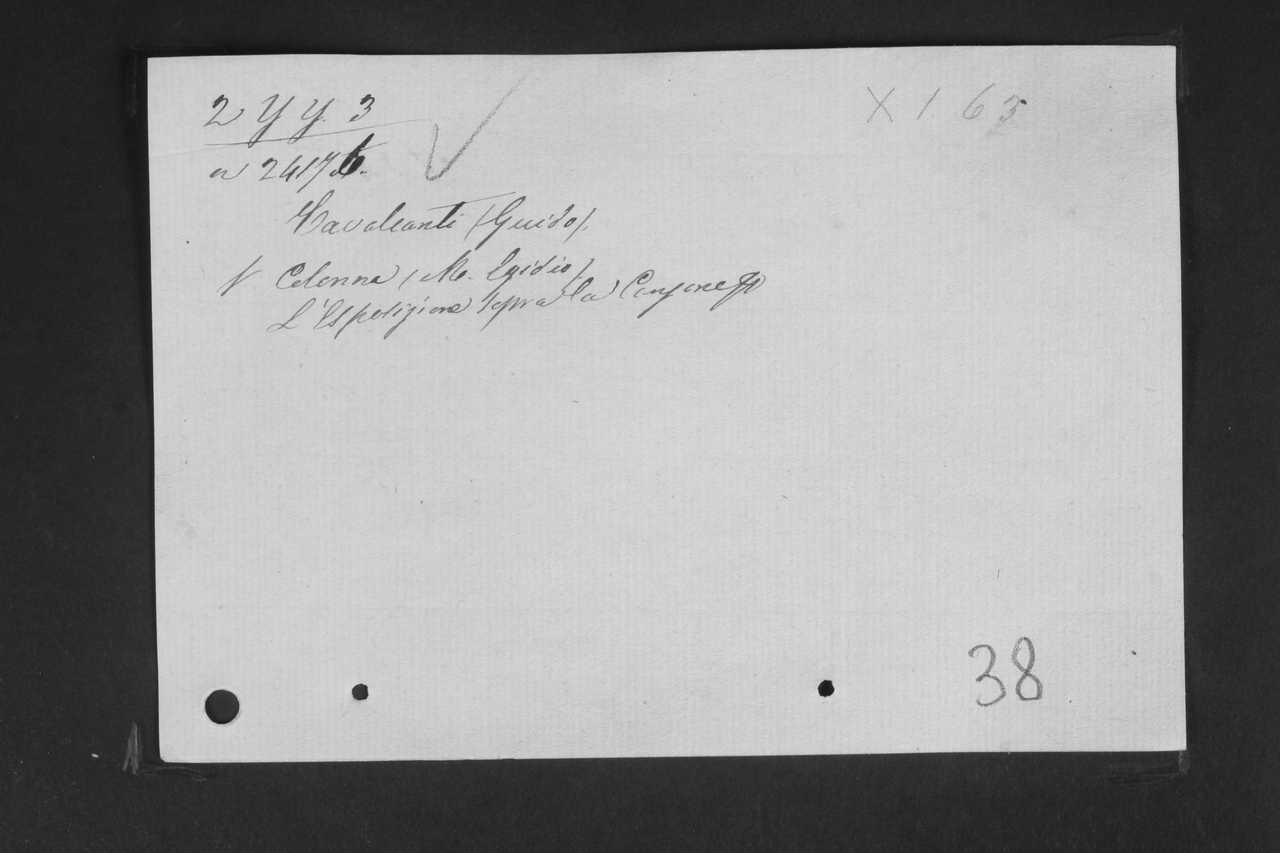 2 Y y. 3
X 1 63
n 24176.
Cavalcanti (Guido).
V Colonna (M. Egidio)
L'Esposizione sopra la Canzone
38